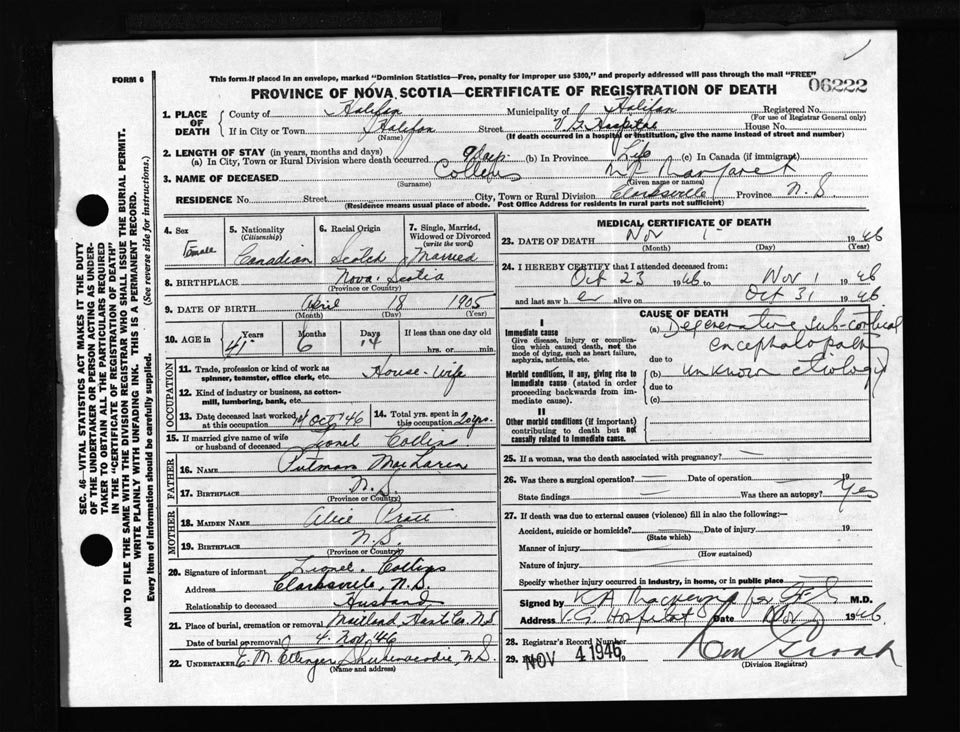 FORM 6
This form if placed in an envelope, marked "Dominion Statistics—Free, penalty for improper use $300," and properly addressed will pass through the mail "FREE"
06222
PROVINCE OF NOVA SCOTIA—CERTIFICATE OF REGISTRATION OF DEATH
1. PLACE OF DEATH
County of Halifax Municipality of Halifax Registered No.
(For use of Registrar General only)
If in City or Town Halifax Street V. G. Hospital House No.
(Name) (If death occurred in a hospital or institution, give the name instead of street and number)
2. LENGTH OF STAY (in years, months and days)
(a) In City, Town or Rural Division where death occurred 9 days (b) In Province Life (c) In Canada (if immigrant)
3. NAME OF DECEASED Collins Margaret
(Surname) (Given name or names)
RESIDENCE No. Street City, Town or Rural Division Clarksville Province N. S.
(Residence means usual place of abode. Post Office Address for residents in rural parts not sufficient)
4. Sex Female
5. Nationality (Citizenship) Canadian
6. Racial Origin Scotch
7. Single, Married, Widowed or Divorced (write the word) Married
8. BIRTHPLACE Nova Scotia
(Province or Country)
9. DATE OF BIRTH April 18 1905
(Month) (Day) (Year)
10. AGE in Years Months Days If less than one day old
41 6 14 hrs. or min.
OCCUPATION
11. Trade, profession or kind of work as spinner, teamster, office clerk, etc. House-wife
12. Kind of industry or business, as cotton-mill, lumbering, bank, etc.
13. Date deceased last worked at this occupation Oct '46
14. Total yrs. spent in this occupation 20 yrs.
15. If married give name of wife or husband of deceased Lionel Collins
FATHER
16. NAME Putman MacLaren
17. BIRTHPLACE N. S.
(Province or Country)
MOTHER
18. MAIDEN NAME Alice Pratt
19. BIRTHPLACE N. S.
(Province or Country)
20. Signature of informant Lionel Collins
Address Clarksville, N. S.
Relationship to deceased Husband
21. Place of burial, cremation or removal Maitland, Hants Co. N.S
Date of burial or removal 4. Nov. 46
22. UNDERTAKER E. M. Ettinger Shubenacadie, N.S.
(Name and address)
MEDICAL CERTIFICATE OF DEATH
23. DATE OF DEATH Nov 1 1946
(Month) (Day) (Year)
24. I HEREBY CERTIFY that I attended deceased from:
Oct 23 1946 to Nov 1 1946
and last saw her alive on Oct 31 1946
CAUSE OF DEATH
I
Immediate cause
Give disease, injury or complication which caused death, not the mode of dying, such as heart failure, asphyxia, asthenia, etc.
(a) Degenerative sub-cortical
encephalopathy
due to
Morbid conditions, if any, giving rise to immediate cause (stated in order proceeding backwards from immediate cause).
(b) unknown etiology
due to
(c)
II
Other morbid conditions (if important) contributing to death but not causally related to immediate cause.
25. If a woman, was the death associated with pregnancy?
26. Was there a surgical operation? Date of operation 19
State findings Was there an autopsy? Yes
27. If death was due to external causes (violence) fill in also the following:—
Accident, suicide or homicide? Date of injury 19
(State which)
Manner of injury
(How sustained)
Nature of injury
Specify whether injury occurred in industry, in home, or in public place
Signed by M.D.
Address V. G. Hospital Date Nov 1946
28. Registrar's Record Number
29. NOV 4 1946
(Division Registrar)
SEC. 46—VITAL STATISTICS ACT MAKES IT THE DUTY
OF THE UNDERTAKER OR PERSON ACTING AS UNDER-
TAKER TO OBTAIN ALL THE PARTICULARS REQUIRED
IN THE "CERTIFICATE OF REGISTRATION OF DEATH"
AND TO FILE THE SAME WITH THE DIVISION REGISTRAR WHO SHALL ISSUE THE BURIAL PERMIT.
WRITE PLAINLY WITH UNFADING INK. THIS IS A PERMANENT RECORD.
Every item of information should be carefully supplied. (See reverse side for instructions.)